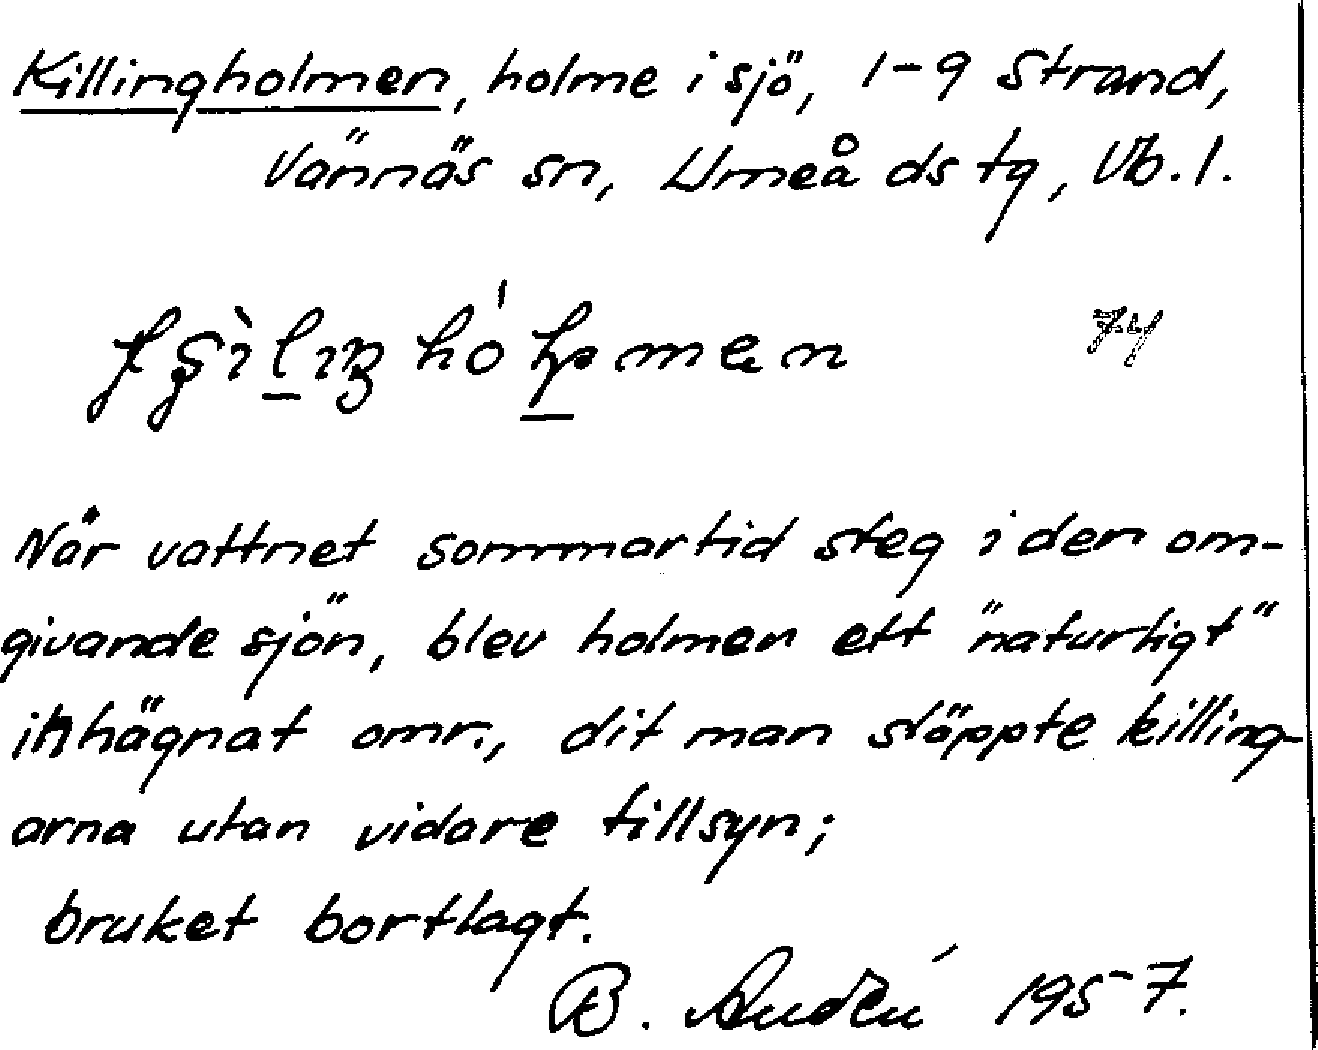 Killingholmen, holme i sjö, 1-9 Strand,
Vännäs sn, Umeå ds tg, Vb. l.
74
När vattnet sommartid steg i den om-
givande sjön, blev holmen ett "naturligt"
inhägnat omr., dit man släppte killing-
arna utan vidare tillsyn;
bruket bortlagt.
B. 1957.